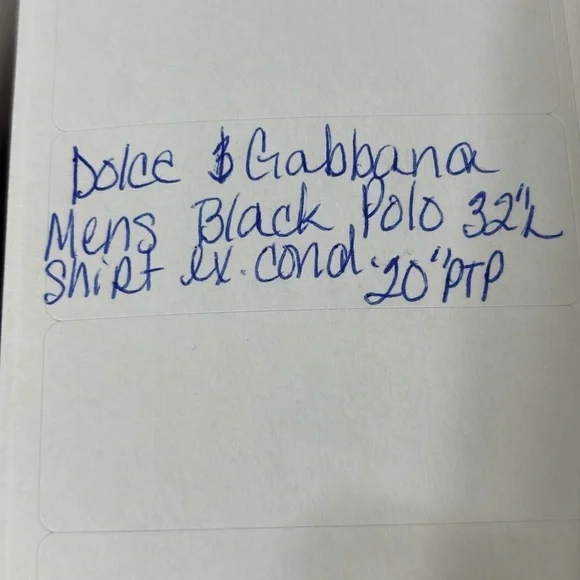 Dolce $ Gabbana
Mens Black Polo 32"L
Shirt ex. cond. 20" PTP